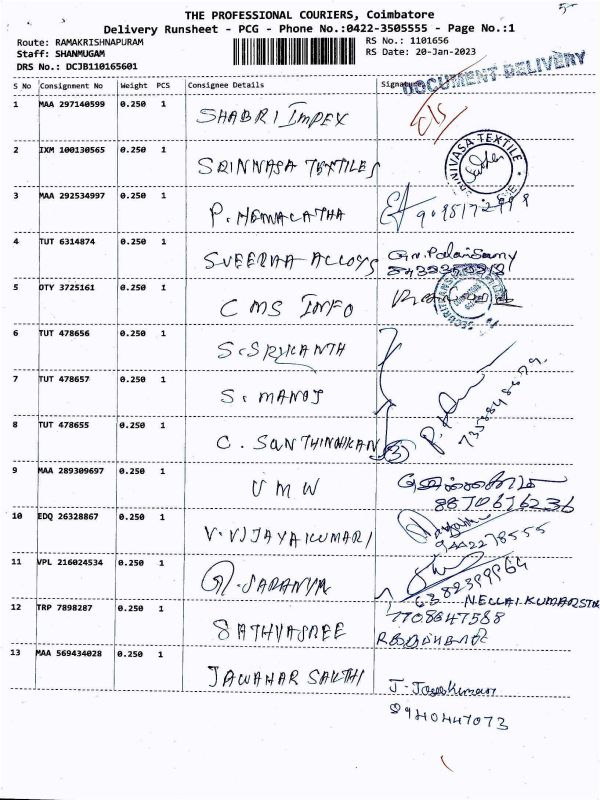 THE PROFESSIONAL COURIERS, Coimbatore
Delivery Runsheet - PCG - Phone No.:0422-3505555 - Page No.:1
Route: RAMAKRISHNAPURAM
RS No.: 1101656
Staff: SHANMUGAM
RS Date: 20-Jan-2023
DRS No.: DCJB110165601
S No Consignment No Weight PCS Consignee Details Signature
DOCUMENT DELIVERY
1 MAA 297140599 0.250 1 SHABRI IMPEX
2 IXM 100130565 0.250 1 SRINIVASA TEXTILES
3 MAA 292534997 0.250 1 P. HEMALATHA
4 TUT 6314874 0.250 1 SVEERAA ALLOYS G.V. PalaniSamy
5 OTY 3725161 0.250 1 CMS INFO
6 TUT 478656 0.250 1 S. SRIKANTH
7 TUT 478657 0.250 1 S. MANOJ
7358848679
8 TUT 478655 0.250 1 C. SANTHINIKAN 3
9 MAA 289309697 0.250 1 UMW
8870676236
10 EDQ 26328867 0.250 1 V. VIJAYAKUMARI
9442278555
11 VPL 216024534 0.250 1 R. SARANYA
6382399964
12 TRP 7898287 0.250 1 SATHYASREE
NELLAI KUMAR STR
7708647588
13 MAA 569434028 0.250 1 JAWAHAR SAKTHI J. Jayakumar
8940447073